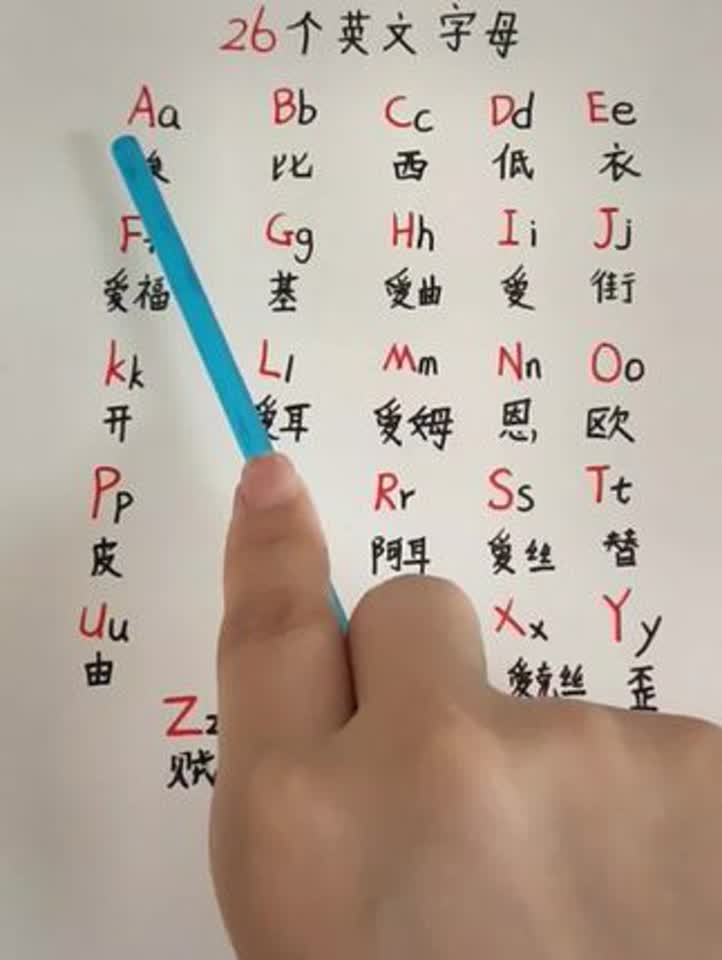 26个英文字母
Aa Bb Cc Dd Ee
比 西 低 衣
F Gg Hh Ii Jj
爱福 基 爱曲 爱 街
Kk Ll Mm Nn Oo
开 爱耳 爱姆 恩, 欧
Pp Rr Ss Tt
皮 阿耳 爱丝 替
Uu Xx Yy
由 爱克丝 歪
Zz
贼